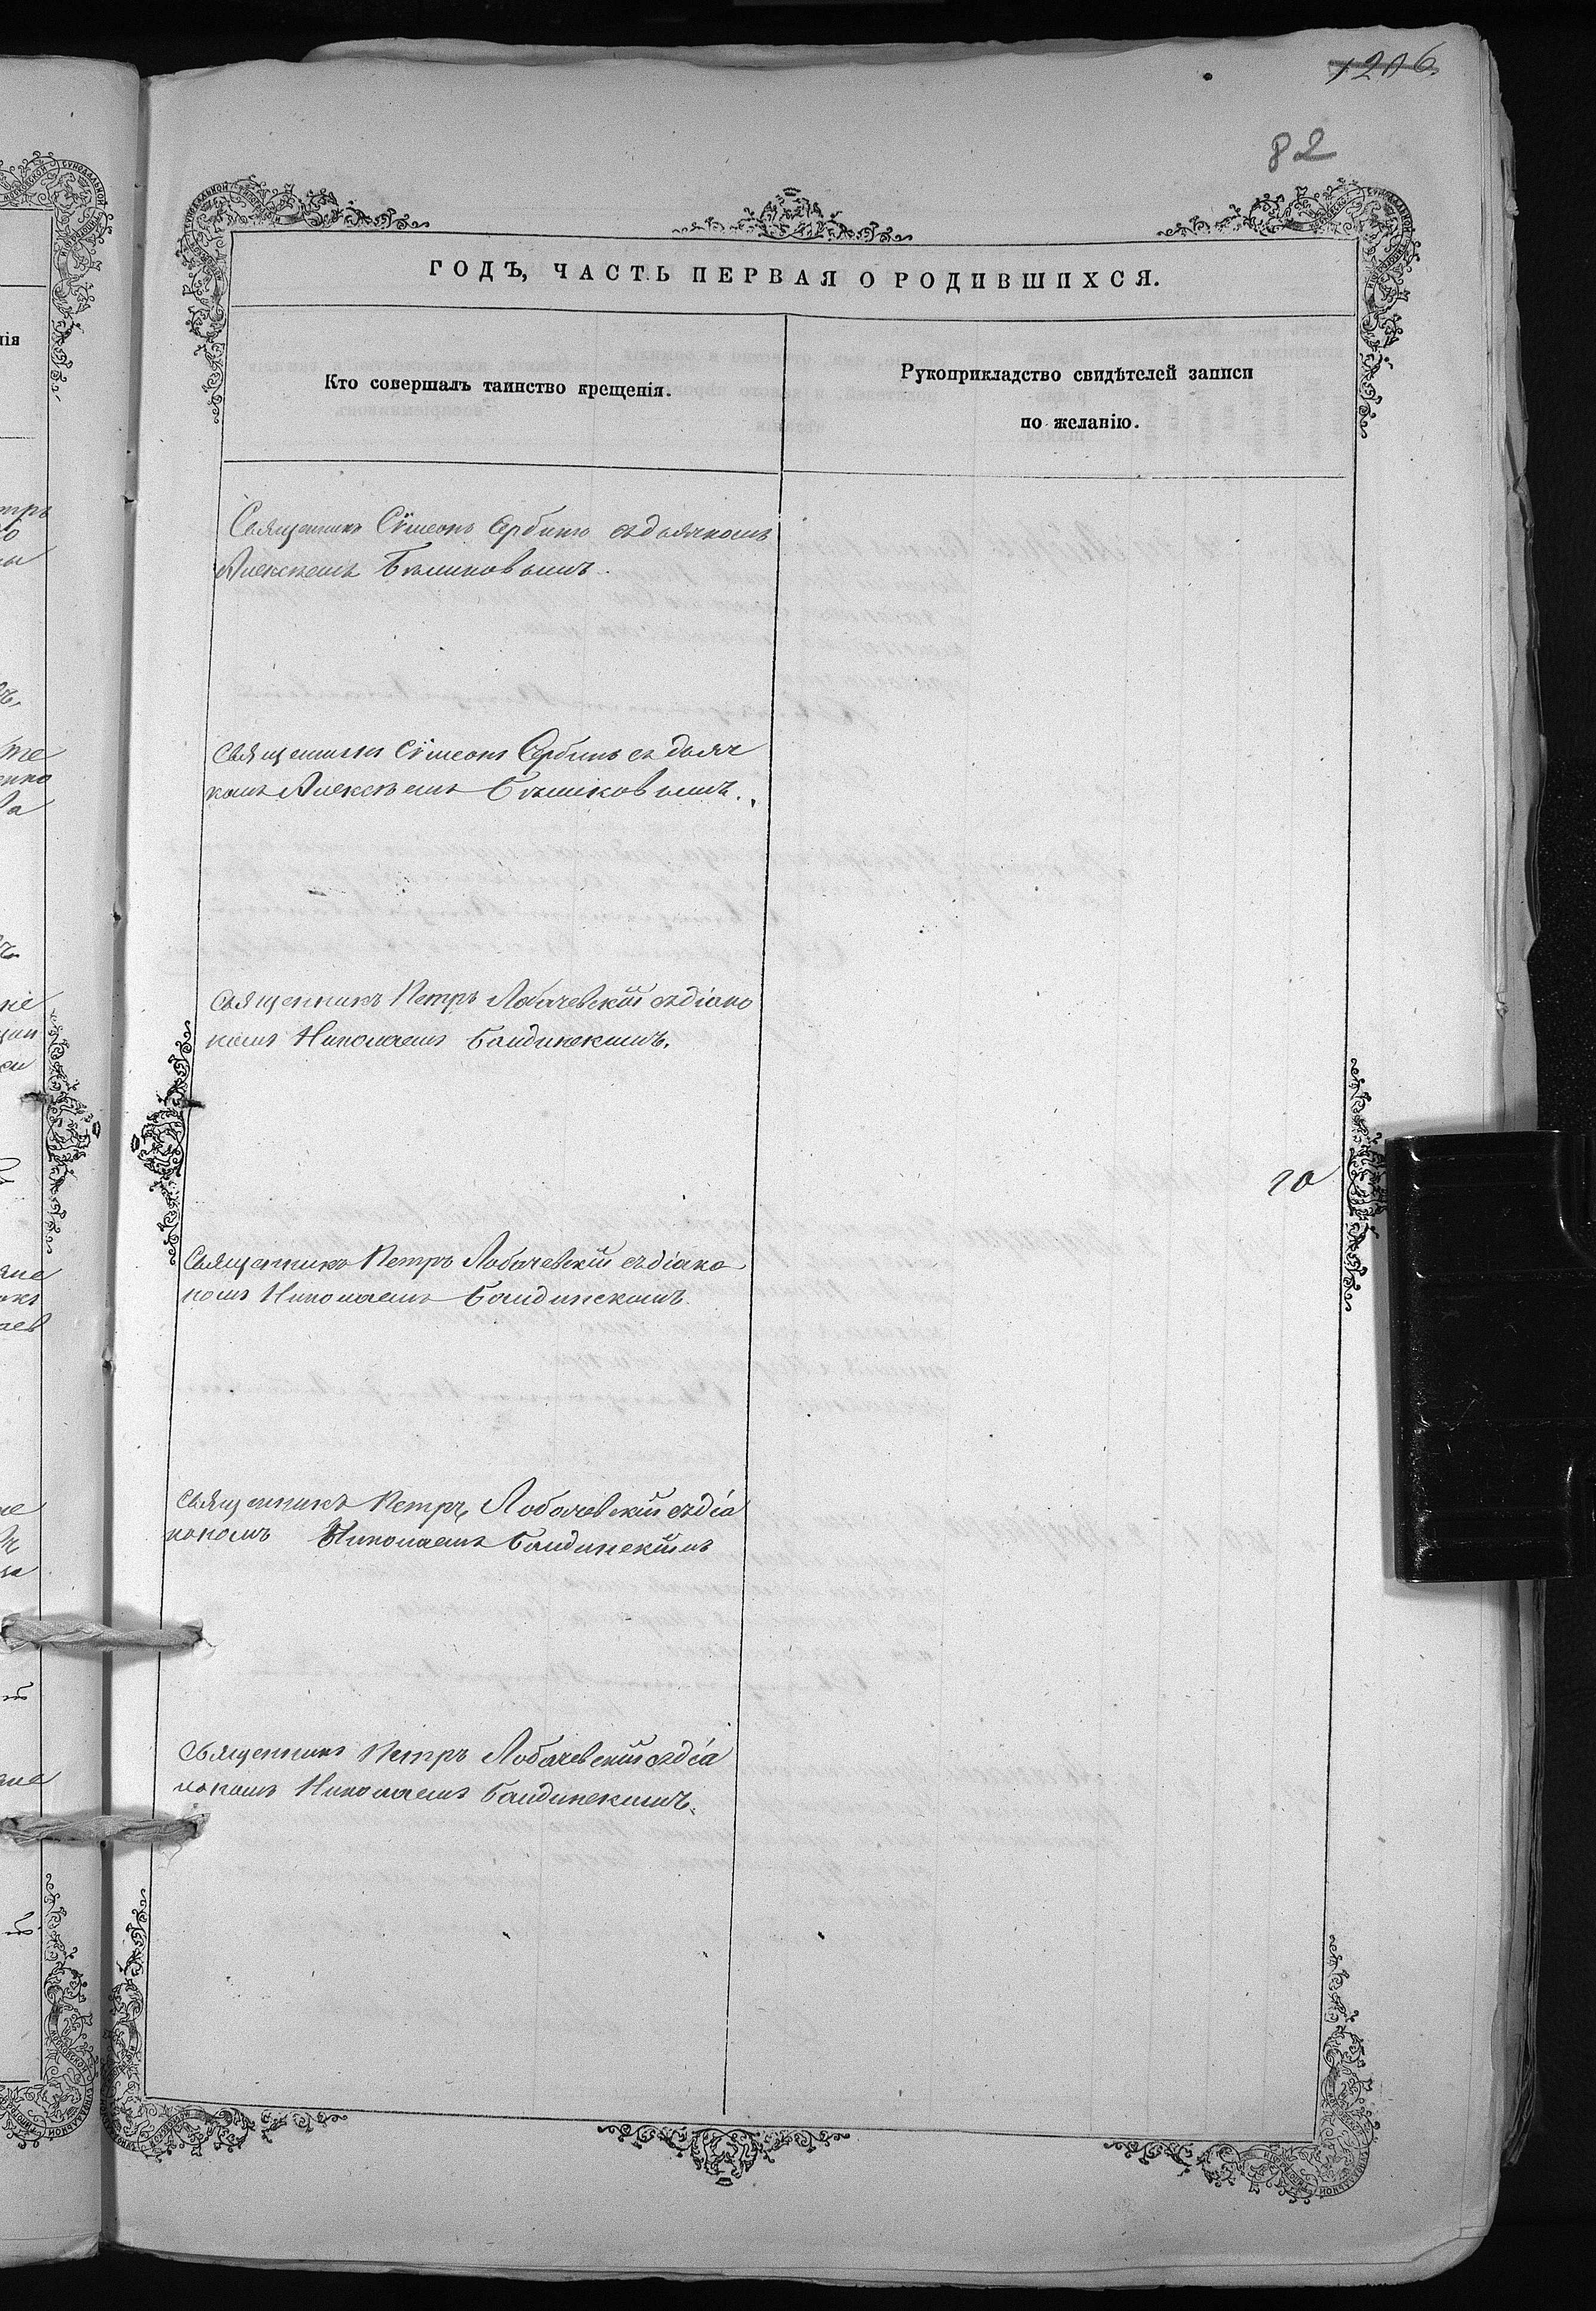 1206.
82
ГОДЪ, ЧАСТЬ ПЕРВАЯ О РОДИВШИХСЯ.
Кто совершалъ таинство крещенія.
Рукоприкладство свидѣтелей записи
по желанію.
Священникъ Сѵмеонъ Сербинъ съ дьячкомъ
Алексѣемъ Бѣликовымъ.
Священникъ Сѵмеонъ Сербинъ съ дьяч
комъ Алексѣемъ Бѣликовымъ.
Священникъ Петръ Лобачевскій съ діако
номъ Николаемъ Балдинскимъ.
10
Священникъ Петръ Лобачевскій съ діако
номъ Николаемъ Балдинскимъ
Священникъ Петръ Лобачевскій съ діа
кономъ Николаемъ Балдинскимъ
Священникъ Петръ Лобачевскій съ діа
кономъ Николаемъ Балдинскимъ.